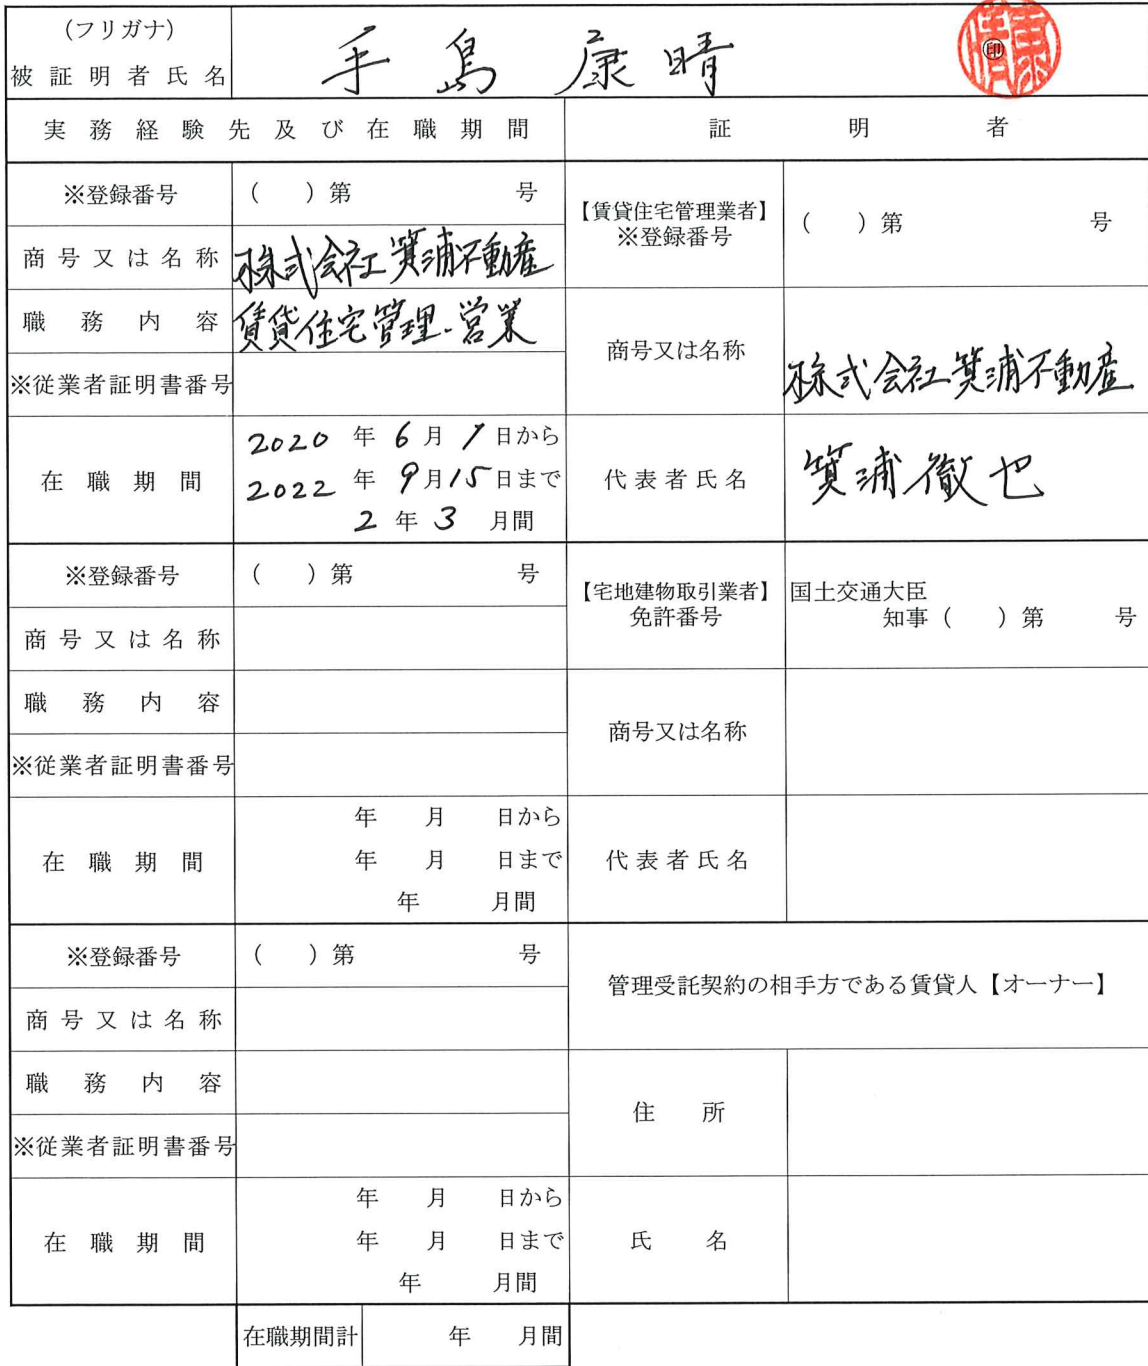 (フリガナ)
被証明者氏名 手島 康晴 ㊞
実務経験先及び在職期間 証明者
※登録番号 ( ) 第 号
【賃貸住宅管理業者】 ※登録番号 ( ) 第 号
商号又は名称 株式会社箕浦不動産
職務内容 賃貸住宅管理・営業
商号又は名称 株式会社箕浦不動産
※従業者証明書番号
在職期間
2020 年 6 月 1 日から
2022 年 9 月 15 日まで
2 年 3 月間
代表者氏名 箕浦徹也
※登録番号 ( ) 第 号
【宅地建物取引業者】 免許番号
国土交通大臣
知事 ( ) 第 号
商号又は名称
職務内容
商号又は名称
※従業者証明書番号
在職期間
年 月 日から
年 月 日まで
年 月間
代表者氏名
※登録番号 ( ) 第 号
管理受託契約の相手方である賃貸人【オーナー】
商号又は名称
職務内容
住所
※従業者証明書番号
在職期間
年 月 日から
年 月 日まで
年 月間
氏名
在職期間計 年 月間